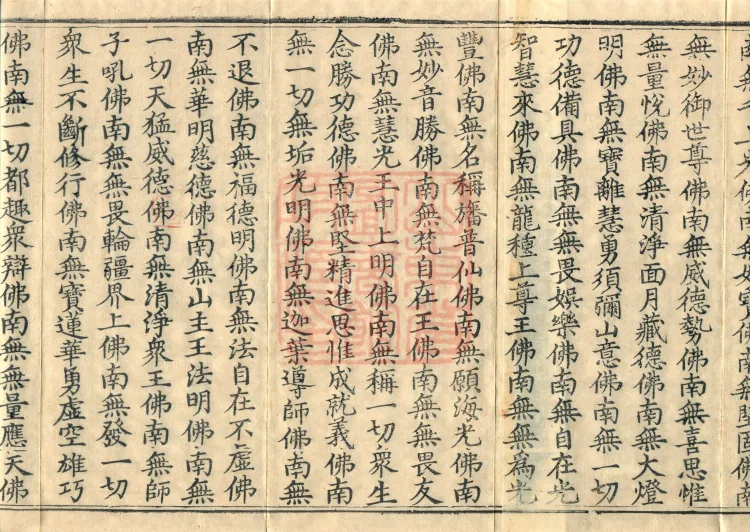 無妙御世尊佛南無威德勢佛南無喜思惟
無量悅佛南無清淨面月藏德佛南無大燈
明佛南無寶離慧勇須彌山意佛南無一切
功德備具佛南無無畏娛樂佛南無自在光
智慧來佛南無龍種上尊王佛南無無為光
豐佛南無名稱旛普仙佛南無願海光佛南
無妙音勝佛南無梵自在王佛南無無畏友
佛南無慧光王中上明佛南無稱一切眾生
念勝功德佛南無堅精進思惟成就義佛南
無一切無垢光明佛南無迦葉導師佛南無
不退佛南無福德明佛南無法自在不虛佛
南無華明慈德佛南無山主王法明佛南無
一切天猛威德佛南無清淨衆王佛南無師
子吼佛南無無畏輪疆界上佛南無發一切
衆生不斷修行佛南無寶蓮華勇虛空雄巧
佛南無一切都趣衆辯佛南無無量應天佛